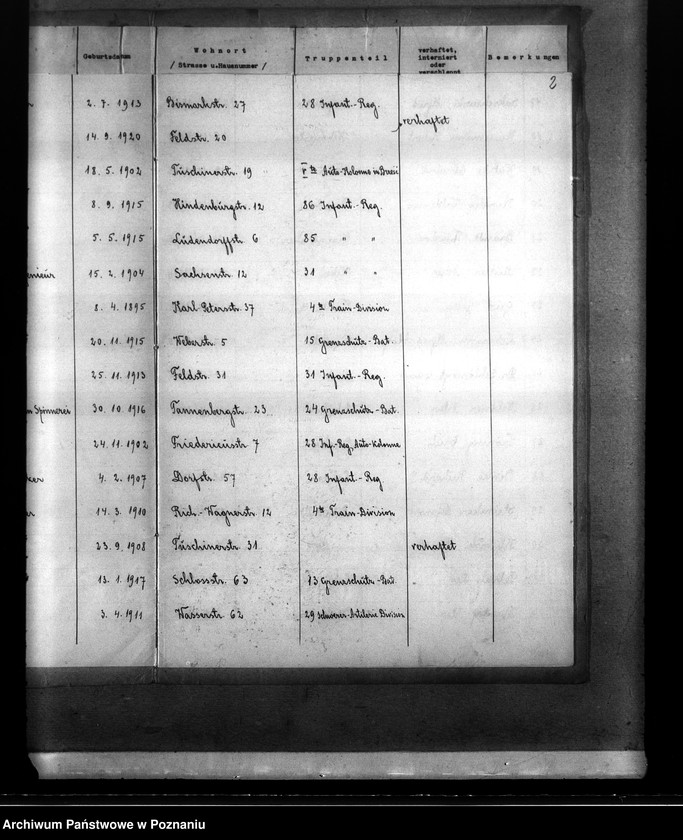 Geburtsdatum Wohnort Truppenteil verhaftet, Bemerkungen
/ Strasse u. Hausnummer / interniert
oder
verschleppt
2
2. 7. 1913 Bismarkstr. 27 28 Infant.-Reg.
verhaftet
14. 9. 1920 Feldstr. 20
18. 5. 1902 Tuschinerstr. 19 Auto-Kolonne in
8. 9. 1915 Hindenburgstr. 12 86 Infant.-Reg.
5. 5. 1915 Ludendorffstr. 6 85 " "
enieur 15. 2. 1904 Sachsenstr. 12 31 " "
8. 4. 1895 Karl-Petersstr. 37 4te Train-Division
20. 11. 1915 Weberstr. 5 15 Grenzschutz-Bat.
25. 11. 1913 Feldstr. 31 31 Infant.-Reg.
Spinnerei 30. 10. 1916 Tannenbergstr. 23 24 Grenzschutz-Bat.
24. 11. 1902 Friedericusstr. 7 28 Inf.-Reg. Auto-Kolonne
ker 4. 2. 1907 Dorfstr. 57 28 Infant.-Reg.
14. 3. 1910 Rich.-Wagnerstr. 12 4te Train-Division
23. 9. 1908 Tuschinerstr. 31 verhaftet
13. 1. 1917 Schlossstr. 63 13 Grenzschutz-Bat.
3. 4. 1911 Wasserstr. 62 29 Schwerer-Artilerie Division
Archiwum Państwowe w Poznaniu